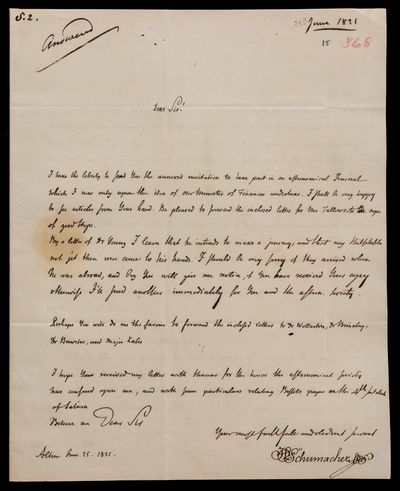 S. 2.
Answered
June 1821
15 368
Dear Sir!
I take the liberty to send You the annexed invitation to take part in an astronomical Journal
which I now only upon the idea of our Minister of Finances undertake. I shall be very happy
to see articles from Your hand. Be pleased to forward the inclosed letter for Mr Fallows to the cape
of good Hope.
By a letter of Dr Young I learn that he intends to make a journey, and that my Hülfstafeln
not yet then were come to his hands. I should be very sorry if they arrived when
he was abroad, and beg You will give me notice, if You have received Your copy
otherwise I'll send another immediately for You and the astron. society.
Perhaps You will do me the favour to forward the inclosed letters to Dr Wollaston, Dr Brinkley,
Dr Brewster, and Major Kater
I hope You received my letter with thanks for the honor the astronomical society
has conferred upon me, and with some particulars relating on the 4th satellite
of Saturn
Believe me Dear Sir
Your most faithful and obedient servant
Altona June 25. 1821. HSchumacher